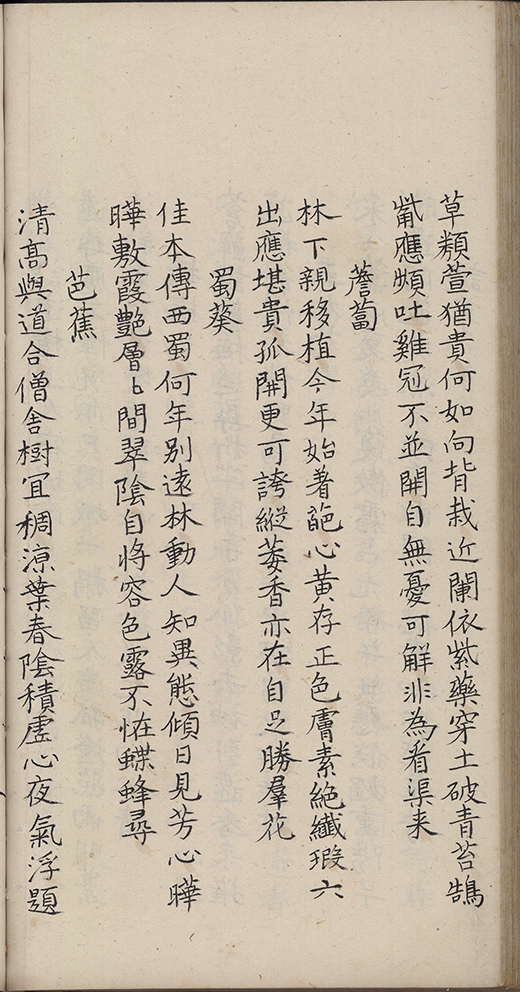 草類萱猶貴何如向背栽近闌依紫藥穿土破青苔鵠
觜應頻吐雞冠不並開自無憂可解非為看渠来
薝蔔
林下親移植今年始著葩心黄存正色膚素絶纖瑕六
出應堪貴孤開更可誇縱萎香亦在自足勝羣花
蜀葵
佳本傳西蜀何年别遠林動人知異態傾日見芳心曄
曄敷霞艷層〻間翠陰自将容色露不恠蝶蜂尋
芭蕉
清髙與道合僧舎樹冝稠凉葉春陰積虚心夜氣浮題